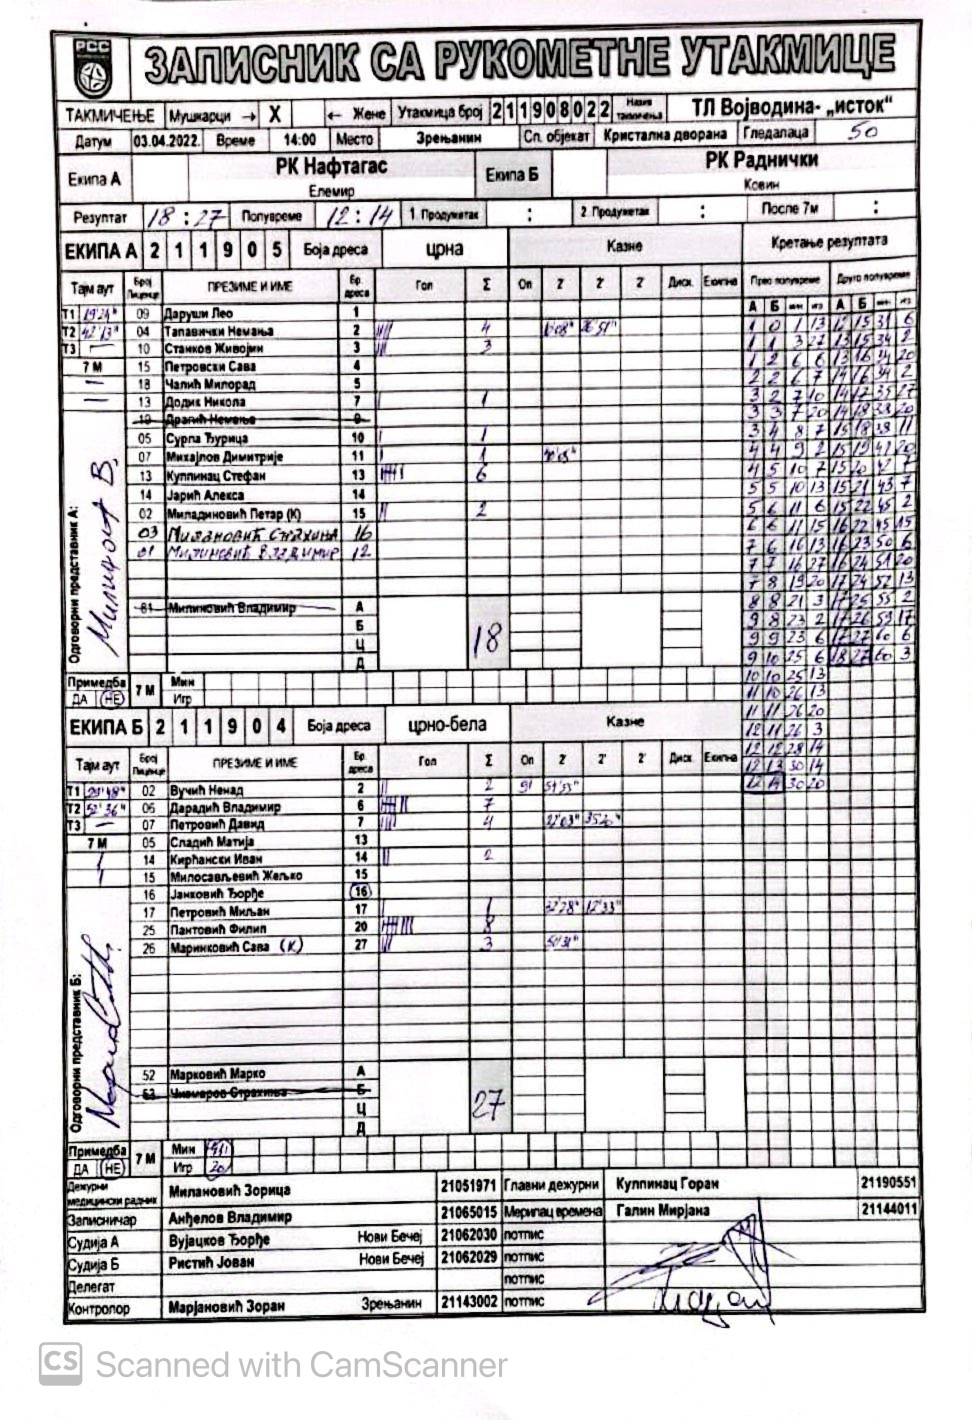 РСС
ЗАПИСНИК СА РУКОМЕТНЕ УТАКМИЦЕ
ТАКМИЧЕЊЕ Мушкарци → X ← Жене Утакмица број 211908022 Назив такмичења ТЛ Војводина- „исток“
Датум 03.04.2022. Време 14:00 Место Зрењанин Сп. објекат Кристална дворана Гледалаца 50
Екипа А РК Нафтагас Елемир Екипа Б РК Раднички Ковин
Резултат 18:27 Полувреме 12:14 1. Продужетак : 2. Продужетак : После 7м :
ЕКИПА А 211905 Боја дреса црна Казне Кретање резултата
Тајм аут Број Лиценце ПРЕЗИМЕ И ИМЕ Бр. дреса Гол Σ Оп 2' 2' 2' Диск. Екипна Прво полувреме Друго полувреме
А Б мин иг А Б мин иг
Т1 19'24" 09 Даруши Лео 1
Т2 42'13" 04 Тапавички Немања 2 4
Т3 — 10 Станков Живојин 3 3
7 М 15 Петровски Сава 4
18 Чалић Милорад 5
13 Додик Никола 7 1
19 Драгић Немања 9
05 Сурла Ђурица 10 1
07 Михајлов Димитрије 11 1
13 Куплинац Стефан 13 6
14 Јарић Алекса 14
02 Миладиновић Петар (К) 15 2
03 Милановић Страхиња 16
01 Милиновић Владимир 12
81 Милиновић Владимир А
Б
Ц
Д
18
Одговорни представник А:
1 0 1 13 12 15 31 6
1 1 3 27 13 15 34 2
1 2 6 6 13 16 34 20
2 2 6 7 14 16 34 2
3 2 7 10 14 17 35 27
3 3 7 20 14 18 38 20
3 4 8 7 15 18 38 11
4 4 9 2 15 19 41 20
4 5 10 7 15 20 42 7
5 5 10 13 15 21 43 7
5 6 11 6 15 22 45 2
6 6 11 15 16 22 45 15
7 6 16 13 16 23 50 6
7 7 16 27 16 24 51 20
7 8 19 20 17 24 52 13
8 8 21 3 17 25 55 2
9 8 23 2 17 26 59 17
9 9 23 6 17 27 60 6
9 10 25 6 18 27 60 3
10 10 25 13
11 10 26 13
11 11 26 20
12 11 26 3
12 12 28 14
12 13 30 14
12 14 30 20
Примедба ДА НЕ 7 М Мин Игр
ЕКИПА Б 211904 Боја дреса црно-бела Казне
Тајм аут Број Лиценце ПРЕЗИМЕ И ИМЕ Бр. дреса Гол Σ Оп 2' 2' 2' Диск. Екипна
Т1 02 Вучић Ненад 2 2
Т2 52'36" 06 Дарадић Владимир 6 7
Т3 — 07 Петровић Давид 7 4
7 М 05 Сладић Матија 13
14 Кирћански Иван 14 2
15 Милосављевић Жељко 15
16 Јанковић Ђорђе 16
17 Петровић Миљан 17 1 32'28"
25 Пантовић Филип 20 8
26 Маринковић Сава (К) 27 3 50'31"
Одговорни представник Б:
52 Марковић Марко А
Б
Ц
Д
27
Примедба ДА НЕ 7 М Мин Игр 20
Дежурни медицински радник Милановић Зорица 21051971 Главни дежурни Куплинац Горан 21190551
Записничар Анђелов Владимир 21065015 Мерилац времена Галин Мирјана 21144011
Судија А Вујацков Ђорђе Нови Бечеј 21062030 потпис
Судија Б Ристић Јован Нови Бечеј 21062029 потпис
Делегат потпис
Контролор Марјановић Зоран Зрењанин 21143002 потпис
CS Scanned with CamScanner